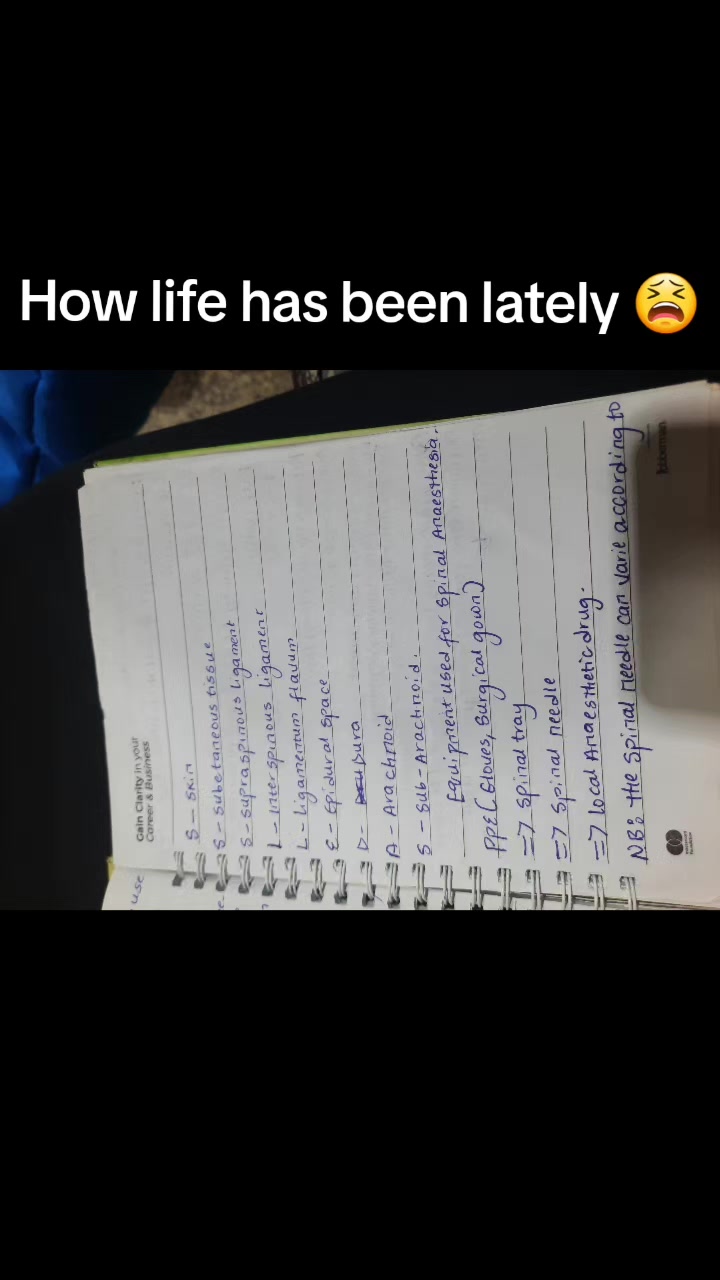 How life has been lately 😫
Gain Clarity in your
Career & Business
use
S - Skin
S - Subetaneous tissue
S - Supraspinous Ligament
I - Interspinous Ligament
L - Ligamentum flavum
E - Epidural Space
D - Dura
A - Arachnoid
S - Sub-Arachnoid.
Equipment used for Spinal Anaesthesia.
PPE (Gloves, Surgical gown)
=> Spinal tray
=> Spinal needle
=> Local Anaesthetic drug.
NB: the Spinal needle can varie according to